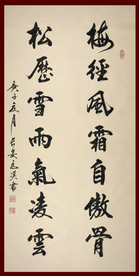 梅經風霜自傲骨
松歷雪雨氣凌雲
庚子夏月 書